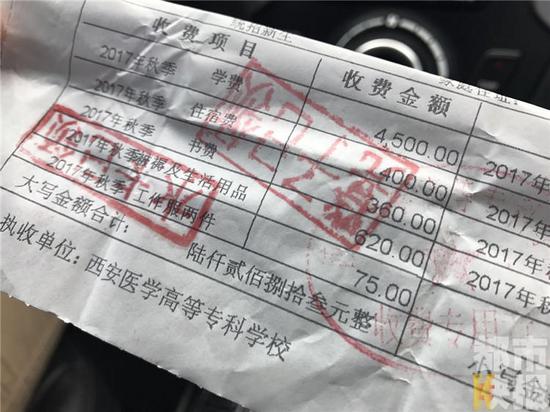 统招新生
收费项目 收费金额
2017年秋季 学费 4,500.00 2017年
2017年秋季 住宿费 400.00 2017年
2017年秋季 书费 360.00 2017年
2017年秋季被褥及生活用品 620.00 2017年秋
2017年秋季工作服两件 75.00
大写金额合计: 陆仟贰佰捌拾叁元整
执收单位:西安医学高等专科学校
收费专用
都市